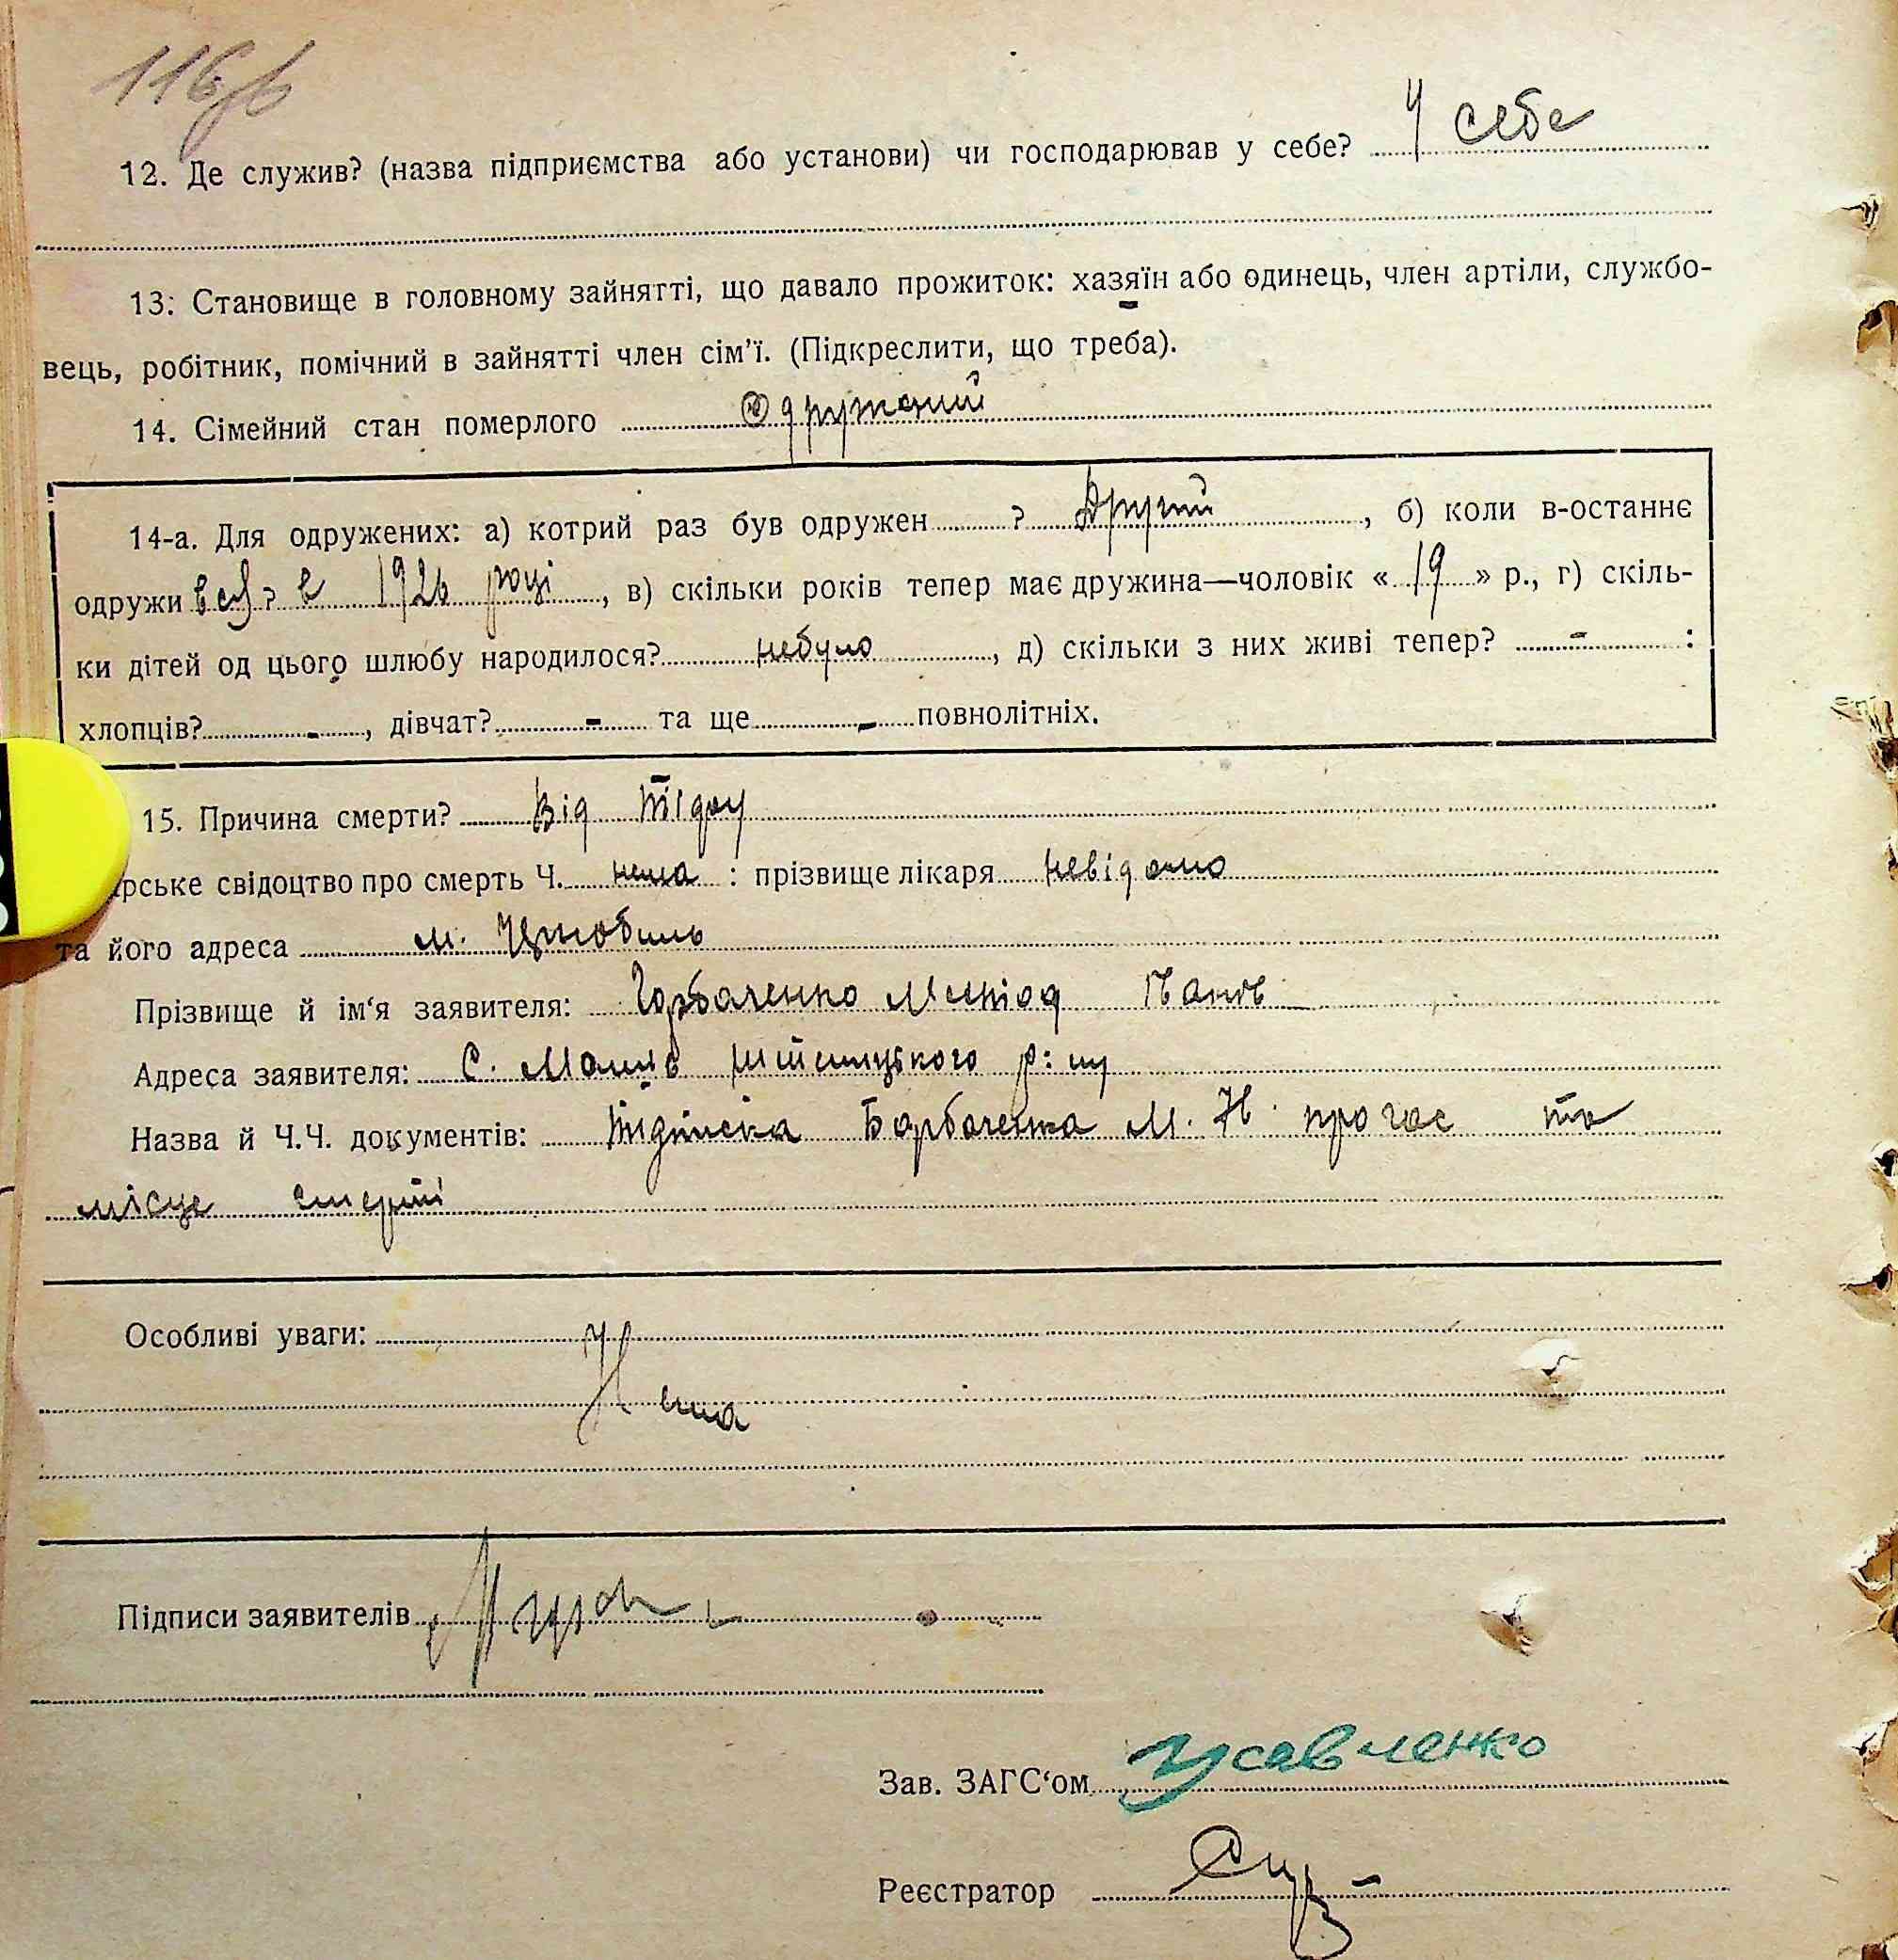 116
12. Де служив? (назва підприємства або установи) чи господарював у себе? У себе
13: Становище в головному зайнятті, що давало прожиток: хазяїн або одинець, член артіли, службо-
вець, робітник, помічний в зайнятті член сім'ї. (Підкреслити, що треба).
14. Сімейний стан померлого Одружаний
14-а. Для одружених: а) котрий раз був одружен ? Другий, б) коли в-останнє
одружи вся? в 1926 році, в) скільки років тепер має дружина—чоловік «19» р., г) скіль-
ки дітей од цього шлюбу народилося? небуло, д) скільки з них живі тепер? - :
хлопців? -, дівчат? - та ще - повнолітніх.
15. Причина смерти? Від
рське свідоцтво про смерть Ч. нема : прізвище лікаря невідомо
та його адреса м. Чернобиль
Прізвище й ім'я заявителя: Горбаченко
Адреса заявителя: С.
Назва й Ч.Ч. документів: Підписка М. Н. про час та
місце смерті
Особливі уваги:
Нема
Підписи заявителів
Зав. ЗАГС'ом Усавленко
Реєстратор